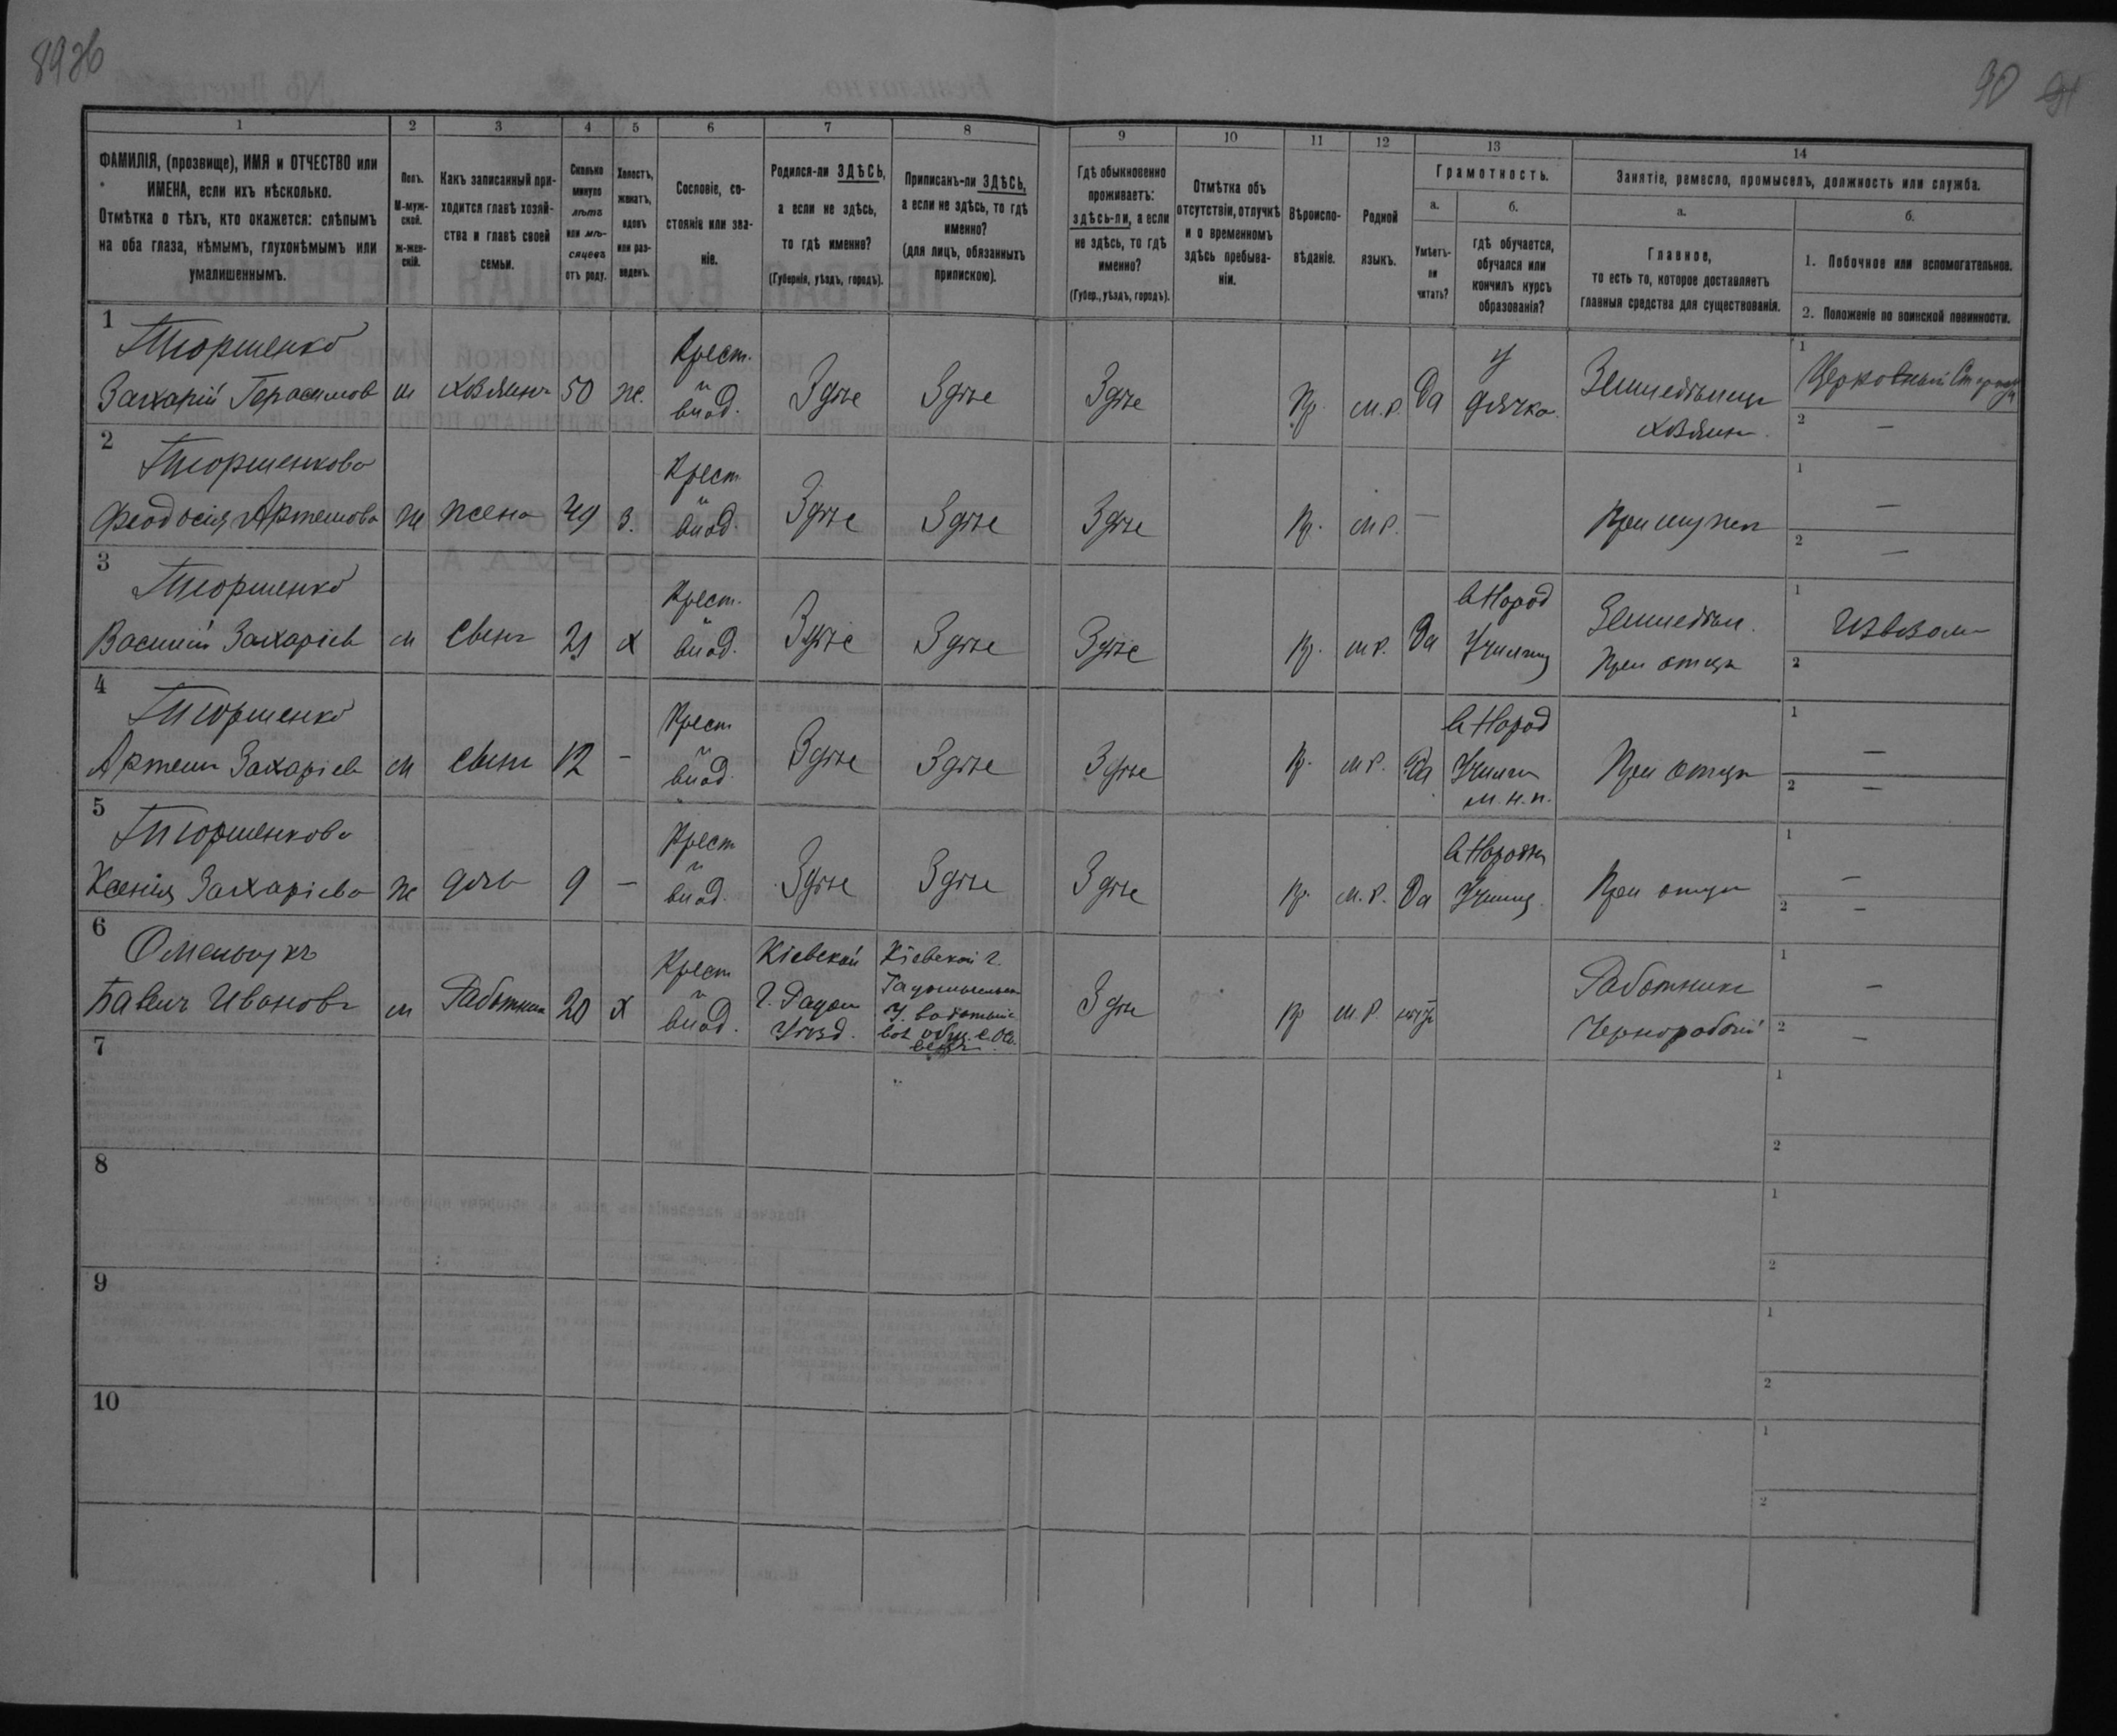 90
1 2 3 4 5 6 7 8 9 10 11 12 13 14
ФАМИЛІЯ, (прозвище), ИМЯ и ОТЧЕСТВО или
ИМЕНА, если ихъ нѣсколько.
Отмѣтка о тѣхъ, кто окажется: слѣпымъ
на оба глаза, нѣмымъ, глухонѣмымъ или
умалишеннымъ.
Полъ.
М-муж-
ской.
Ж-жен-
скій.
Какъ записанный при-
ходится главѣ хозяй-
ства и главѣ своей
семьи.
Сколько
минуло
лѣтъ
или мѣ-
сяцевъ
отъ роду.
Холостъ,
женатъ,
вдовъ
или раз-
веденъ.
Сословіе, со-
стояніе или зва-
ніе.
Родился-ли ЗДѢСЬ,
а если не здѣсь,
то гдѣ именно?
(Губернія, уѣздъ, городъ).
Приписанъ-ли ЗДѢСЬ,
а если не здѣсь, то гдѣ
именно?
(для лицъ, обязанныхъ
припискою).
Гдѣ обыкновенно
проживаетъ:
здѣсь-ли, а если
не здѣсь, то гдѣ
именно?
(Губер., уѣздъ, городъ).
Отмѣтка объ
отсутствіи, отлучкѣ
и о временномъ
здѣсь пребыва-
ніи.
Вѣроиспо-
вѣданіе.
Родной
языкъ.
Грамотность.
а.
Умѣетъ-
ли
читать?
б.
гдѣ обучается,
обучался или
кончилъ курсъ
образованія?
Занятіе, ремесло, промыселъ, должность или служба.
а.
Главное,
то есть то, которое доставляетъ
главныя средства для существованія.
б.
1. Побочное или вспомогательное.
2. Положеніе по воинской повинности.
1
Тюрменко
Захарій Герасимов м хозяинъ 50 ж. Крест. и влад. Здѣсе Здѣсе Здѣсе Пр. м.р. Да у дячка Земледѣлецъ хозяин
1 Церковный
2 —
2
Тюрменкова
Феодосія Артемова ж жена 49 з. Крест и влад. Здѣсе Здѣсе Здѣсе Пр. м.р. — При мужеи
1 —
2 —
3
Тюрменко
Василій Захаріев м сынъ 21 х Крест. и влад. Здѣсе Здѣсе Здѣсе Пр. м.р. Да в Народ Училищ Земледѣл. При отцѣ
1 Извозом
2
4
Тюрменко
Артем Захаріев м сынъ 12 - Крест и влад. Здѣсе Здѣсе Здѣсе Пр. м.р. Да в Народ Училищ м.н.п. При отцѣ
1 —
2 —
5
Тюрменкова
Ксенія Захаріева ж дочь 9 — Крест и влад. Здѣсе Здѣсе Здѣсе Пр. м.р. Да в Народн Училищ. При отцѣ
1 —
2 —
6
Омельчукъ
Павелъ Ивановъ м Работник 20 х Крест и влад. Кіевской г. Радом Уѣзд. Кіевской г. Здѣсе Пр м.р. нѣтъ Работникъ Чернорабочій
1 —
2 —
7
1
2
8
1
2
9
1
2
10
1
2